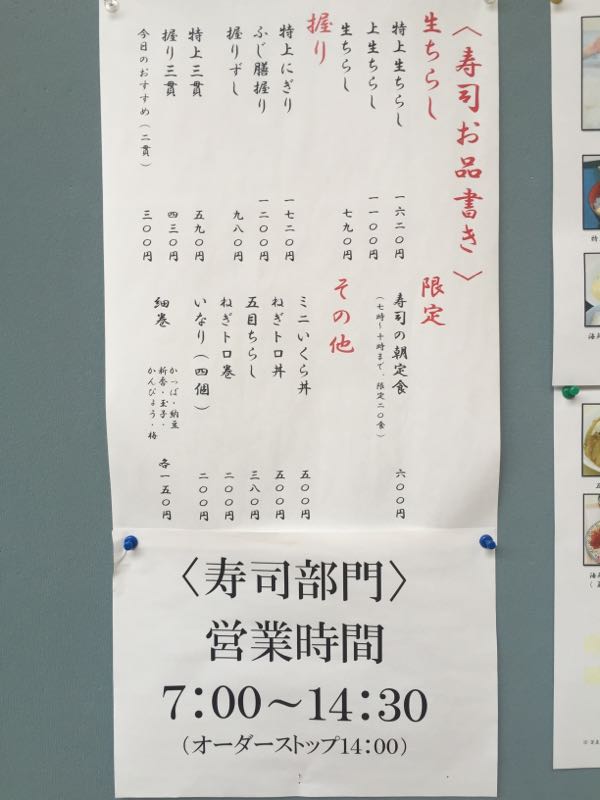 〈寿司お品書き〉
生ちらし
特上生ちらし 一六二〇円
上生ちらし 一一〇〇円
生ちらし 七九〇円
握り
特上にぎり 一七二〇円
ふじ膳握り 一二〇〇円
握りずし 九八〇円
特上三貫 五九〇円
握り三貫 四三〇円
今日のおすすめ(二貫) 三〇〇円
限定
寿司の朝定食 六〇〇円
(七時～十時まで、限定二〇食)
その他
ミニいくら丼 五〇〇円
ねぎトロ丼 五〇〇円
五目ちらし 三八〇円
ねぎトロ巻 二〇〇円
いなり(四個) 二〇〇円
細巻 各一五〇円
かっぱ・納豆
新香・玉子・
かんぴょう・梅
〈寿司部門〉
営業時間
7:00～14:30
(オーダーストップ14:00)